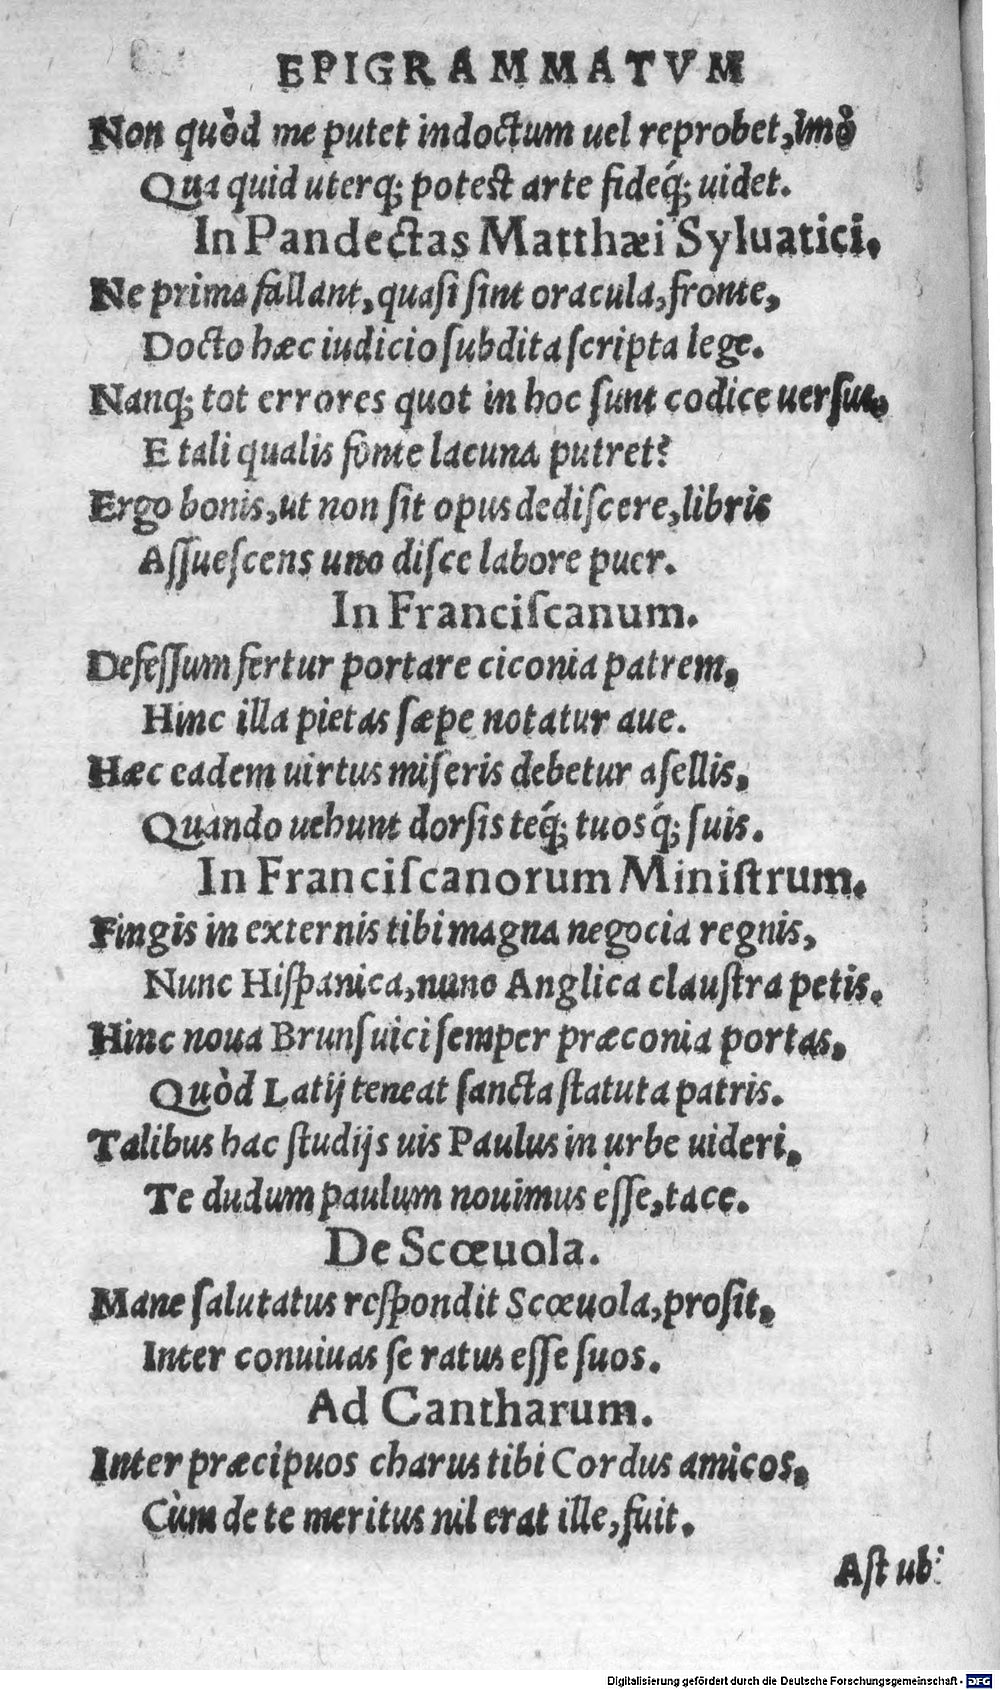 EPIGRAMMATVM
Non quòd me putet indoctum uel reprobet, imò
Qua quid uterq; potest arte fideq́; uidet.
In Pandectas Matthæi Syluatici.
Ne prima fallant, quasi sint oracula, fronte,
Docto hæc iudicio subdita scripta lege.
Nanq; tot errores quot in hoc sunt codice uersus,
E tali qualis fonte lacuna putret?
Ergo bonis, ut non sit opus dediscere, libris
Assuescens uno disce labore puer.
In Franciscanum.
Defessum fertur portare ciconia patrem,
Hinc illa pietas sæpe notatur aue.
Hæc eadem uirtus miseris debetur asellis,
Quando uehunt dorsis teq́; tuosq́; suis.
In Franciscanorum Ministrum.
Fingis in externis tibi magna negocia regnis,
Nunc Hispanica, nunc Anglica claustra petis.
Hinc noua Brunsuici semper præconia portas,
Quòd Latij teneat sancta statuta patris.
Talibus hac studijs uis Paulus in urbe uideri,
Te dudum paulum nouimus esse, tace.
De Scœuola.
Mane salutatus respondit Scœuola, prosit,
Inter conuiuas se ratus esse suos.
Ad Cantharum.
Inter præcipuos charus tibi Cordus amicos,
Cùm de te meritus nil erat ille, fuit.
Ast ubi
Digitalisierung gefördert durch die Deutsche Forschungsgemeinschaft - DFG